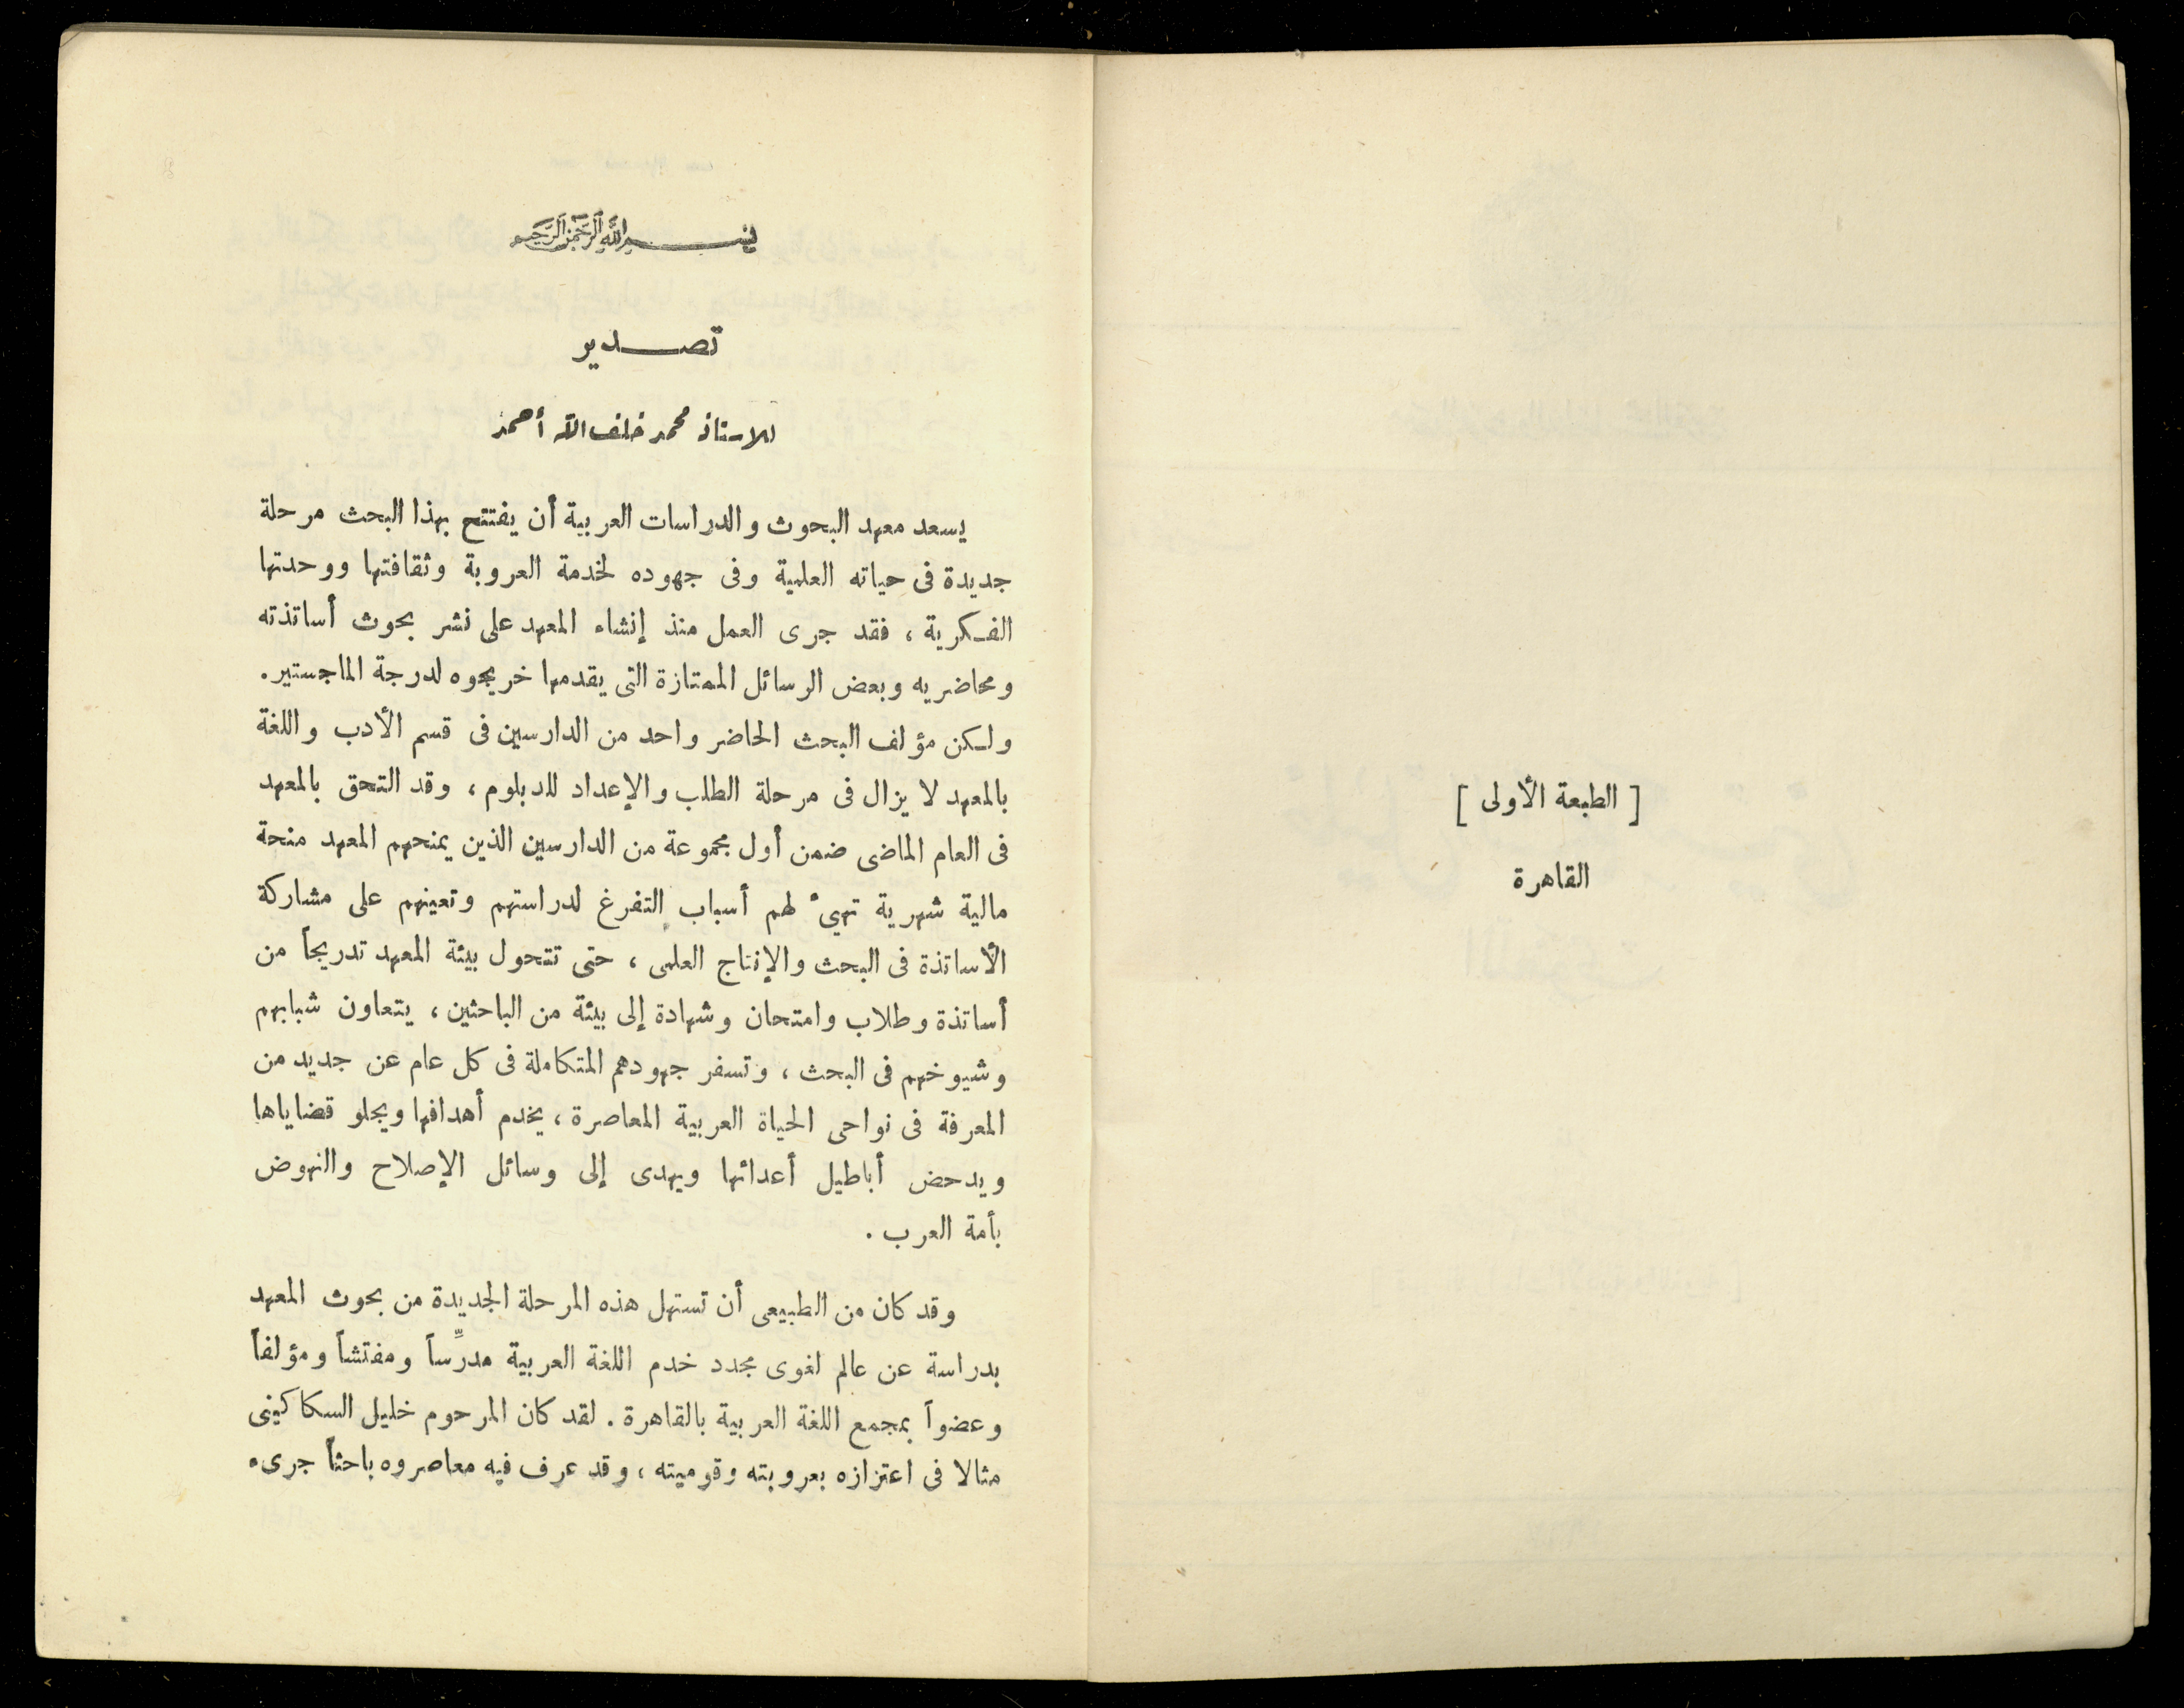 [ الطبعة الأولى ]
القاهرة
بسم الله الرحمن الرحيم
تصدير
للأستاذ محمد خلف الله أحمد
يسعد معهد البحوث والدراسات العربية أن يفتتح بهذا البحث مرحلة
جديدة فى حياته العلمية وفى جهوده لخدمة العروبة وثقافتها ووحدتها
الفكرية ، فقد جرى العمل منذ إنشاء المعهد على نشر بحوث أساتذته
ومحاضريه وبعض الرسائل الممتازة التى يقدمها خريجوه لدرجة الماجستير .
ولكن مؤلف البحث الحاضر واحد من الدارسين فى قسم الأدب واللغة
بالمعهد لا يزال فى مرحلة الطلب والإعداد للدبلوم ، وقد التحق بالمعهد
فى العام الماضى ضمن أول مجموعة من الدارسين الذين يمنحهم المعهد منحة
مالية شهرية تهيئ لهم أسباب التفرغ لدراستهم وتعينهم على مشاركة
الأساتذة فى البحث والإنتاج العلمى ، حتى تتحول بيئة المعهد تدريجاً من
أساتذة وطلاب وامتحان وشهادة إلى بيئة من الباحثين ، يتعاون شبابهم
وشيوخهم فى البحث ، وتسفر جهودهم المتكاملة فى كل عام عن جديد من
المعرفة فى نواحى الحياة العربية المعاصرة ، يخدم أهدافها ويجلو قضاياها
ويدحض أباطيل أعدائها ويهدى إلى وسائل الإصلاح والنهوض
بأمة العرب .
وقد كان من الطبيعى أن تستهل هذه المرحلة الجديدة من بحوث المعهد
بدراسة عن عالم لغوى مجدد خدم اللغة العربية مدرِّساً ومفتشاً ومؤلفاً
وعضواً بمجمع اللغة العربية بالقاهرة . لقد كان المرحوم خليل السكاكينى
مثالا فى اعتزازه بعروبته وقوميته ، وقد عرف فيه معاصروه باحثاً جرىء